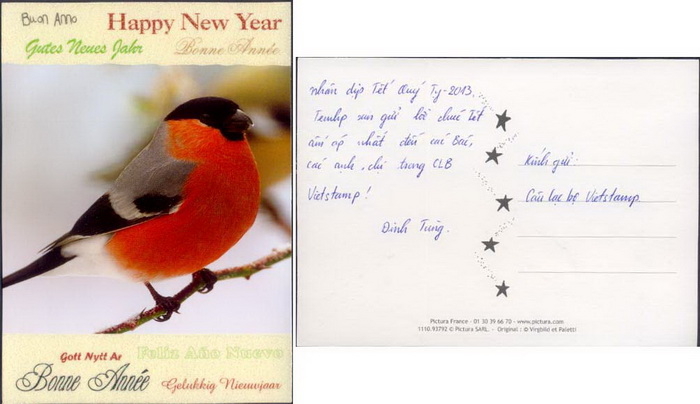 Buon Anno
Happy New Year
Gutes Neues Jahr
Bonne Année
Gott Nytt Ar
Feliz Año Nuevo
Bonne Année
Gelukkig Nieuwjaar
nhân dịp Tết Quý Tỵ-2013.
Temhp xin gửi lời chúc Tết
ấm áp nhất đến các Bác,
các anh, chị trong CLB
Vietstamp!
Đinh Tùng.
Kính gửi:
Câu lạc bộ Vietstamp
Pictura France - 01 30 39 66 70 - www.pictura.com
1110.93792 © Pictura SARL. - Original : © Virgbild et Paletti